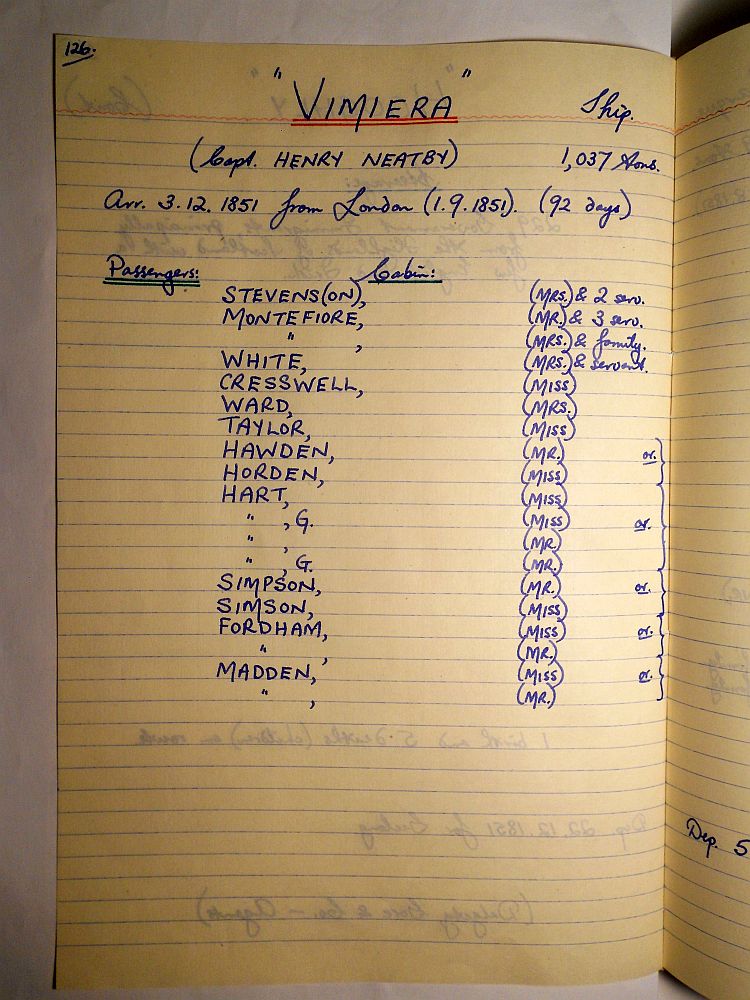 126.
"VIMIERA" Ship.
(Capt. HENRY NEATBY) 1,037 tons.
Arr. 3.12.1851 from London (1.9.1851). (92 days)
Passengers: Cabin:
STEVENS(ON), (MRS.) & 2 serv.
MONTEFIORE, (MR.) & 3 serv.
" , (MRS.) & family.
WHITE, (MRS.) & servant.
CRESSWELL, (MISS)
WARD, (MRS.)
TAYLOR, (MISS)
HAWDEN, (MR.) or. }
HORDEN, (MISS)
HART, (MISS)
" , G. (MISS) or. }
" , (MR.)
" , G. (MR.)
SIMPSON, (MR.) or. }
SIMSON, (MISS)
FORDHAM, (MISS) or. }
" , (MR.)
MADDEN, (MISS) or. }
" , (MR.)
Dep. 5